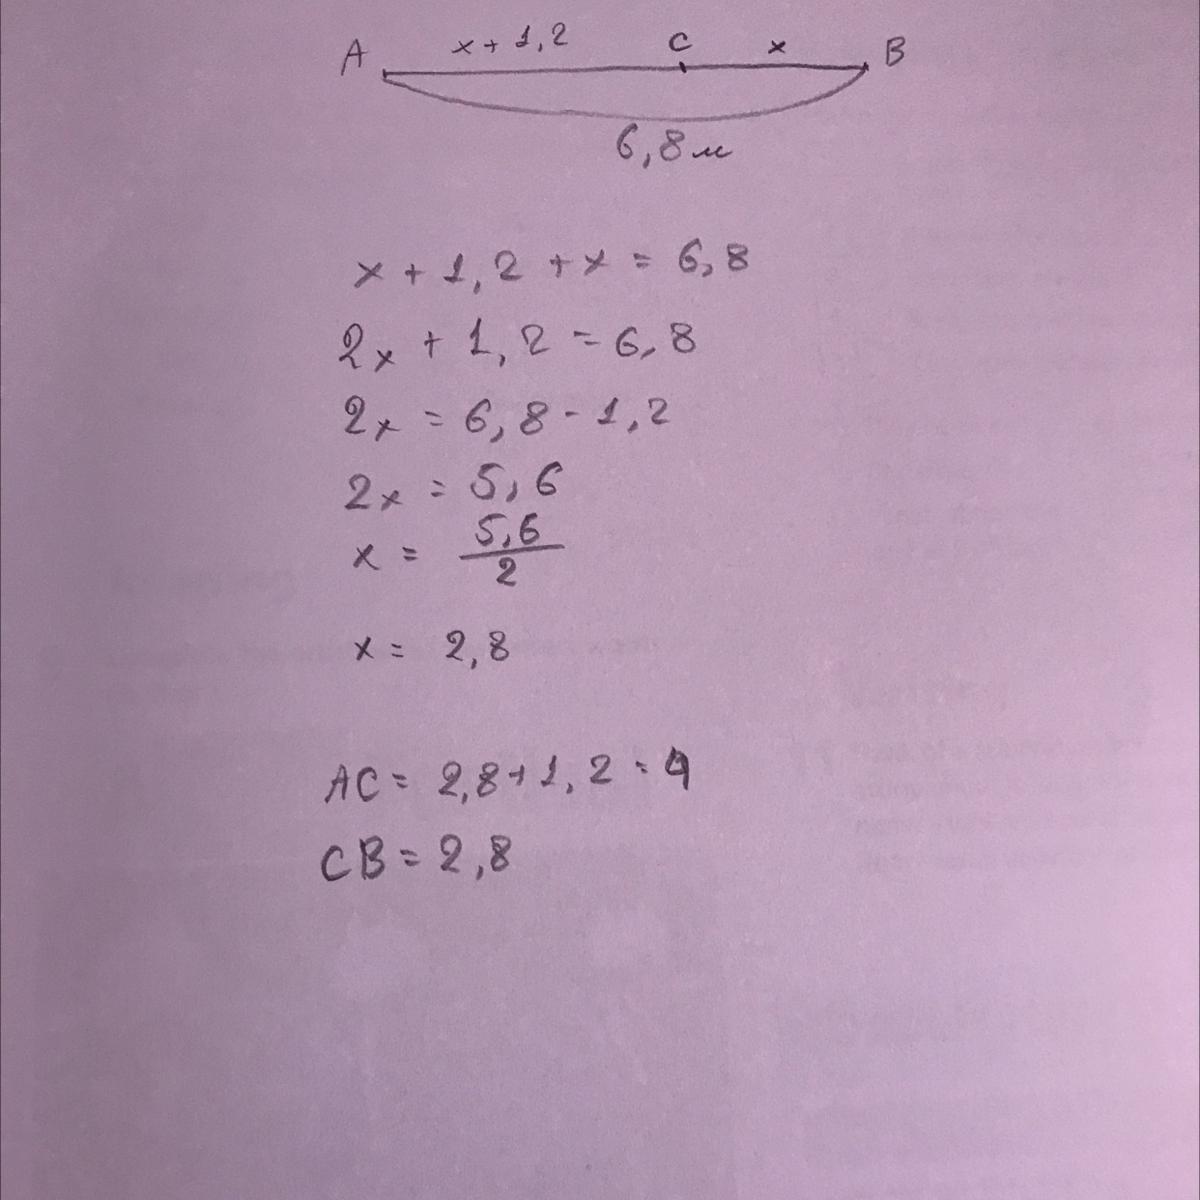 A x + 1,2 C x B
6,8 м
x + 1,2 + x = 6,8
2x + 1,2 = 6,8
2x = 6,8 - 1,2
2x = 5,6
x = 5,6/2
x = 2,8
AC = 2,8 + 1,2 = 4
CB = 2,8